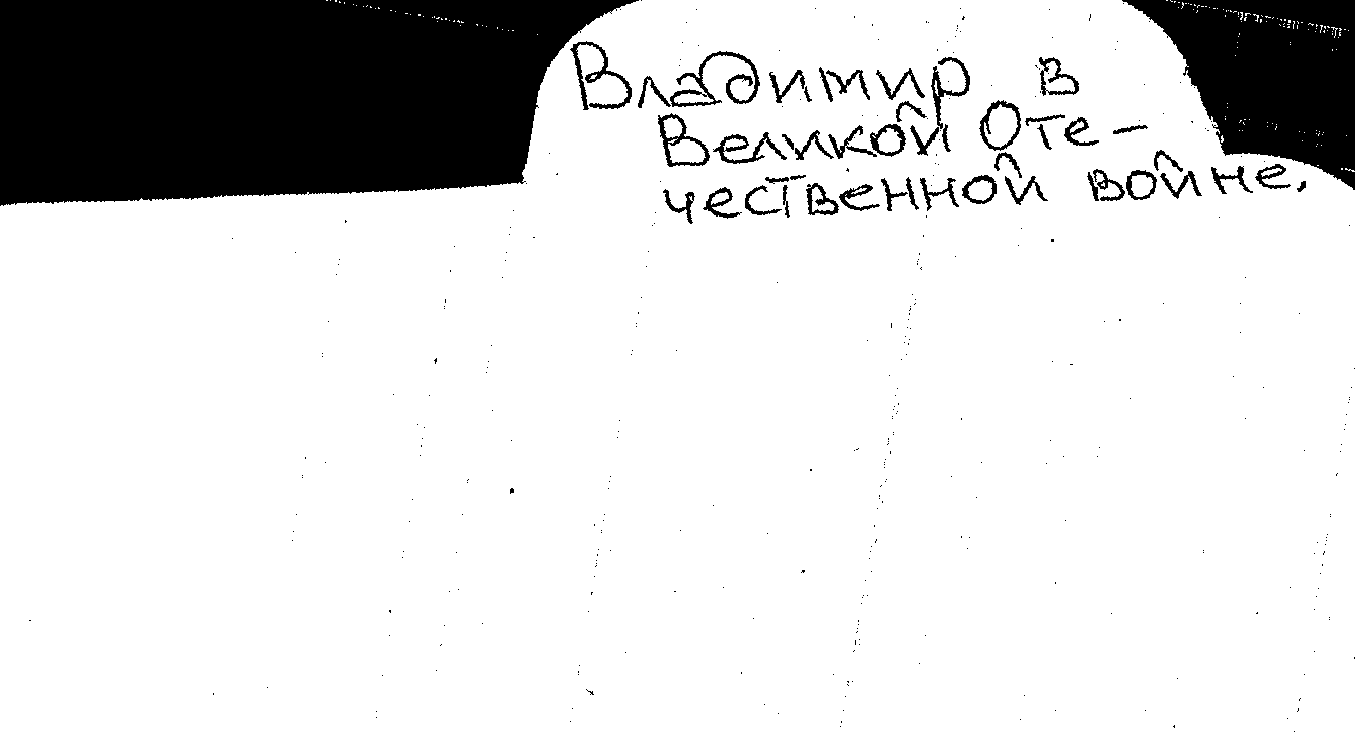 Владимир в
Великой Оте-
чественной войне.